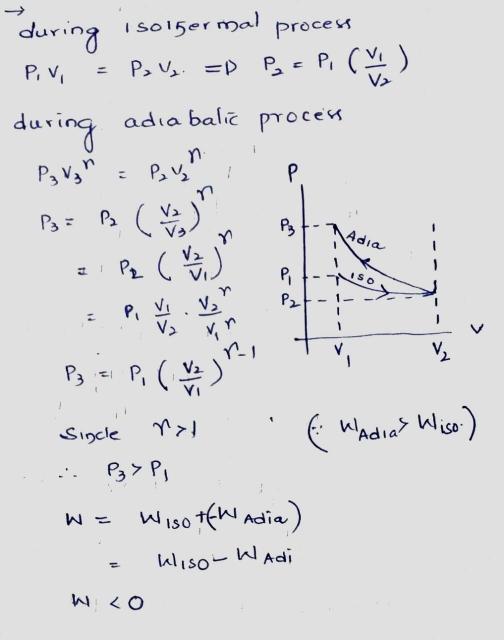 →
during iso15ermal process
P₁ V₁ = P₂ V₂. ⇒ P₂ = P₁ (V₁/V₂)
during adiabalic process
P₃ V₃ʳ = P₂ V₂ʳ
P₃ = P₂ (V₂/V₃)ʳ
= P₂ (V₂/V₁)ʳ
= P₁ V₁/V₂ · V₂ʳ/V₁ʳ
P₃ = P₁ (V₂/V₁)ʳ⁻¹
P
P₃
Adia
P₁
iso
P₂
V
V₁
V₂
Singcle r>1
(∵ WAdia> Wiso.)
∴ P₃ > P₁
W = Wiso +(-W Adia)
= Wiso - W Adi
W < 0